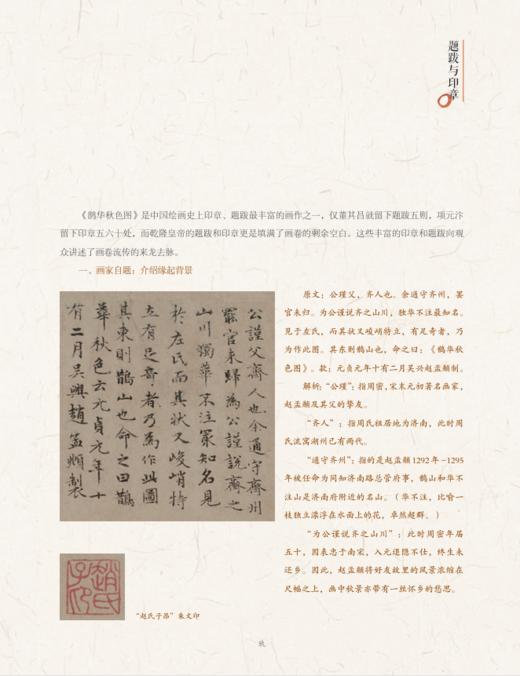 题跋与印章
《鹊华秋色图》是中国绘画史上印章、题跋最丰富的画作之一，仅董其昌就留下题跋五则，项元汴
留下印章五六十处，而乾隆皇帝的题跋和印章更是填满了画卷的剩余空白。这些丰富的印章和题跋向观
众讲述了画卷流传的来龙去脉。
一、画家自题：介绍缘起背景
公謹父齊人也余通守齊州
罷官来歸為公謹說齊之
山川獨華不注冣知名見
於左氏而其状又峻峭特
立有足奇者乃為作此圖
其東則鵲山也命之曰鵲
華秋色云元貞元年十
有二月吳興趙孟頫製
原文：公瑾父，齐人也。余通守齐州，罢
官来归。为公谨说齐之山川，独华不注最知名。
见于左氏，而其状又峻峭特立，有足奇者，乃
为作此图。其东则鹊山也，命之曰：《鹊华秋
色图》。款：元贞元年十有二月吴兴赵孟頫制。
解析：“公瑾”：指周密，宋末元初著名画家，
赵孟頫及其父的挚友。
“齐人”：指周氏祖居地为济南，此时周
氏流寓湖州已有两代。
“通守齐州”：指的是赵孟頫1292年-1295
年被任命为同知济南路总管府事，鹊山和华不
注山是济南府附近的名山。（华不注，比喻一
枝独立漂浮在水面上的花，卓然超群。）
“为公谨说齐之山川”：此时周密年届
五十，因表忠于南宋，入元退隐不仕，终生未
还乡。因此，赵孟頫将好友故里的风景浓缩在
尺幅之上，画中秋景亦带有一丝怀乡的愁思。
趙氏子昂
“赵氏子昂”朱文印
玖